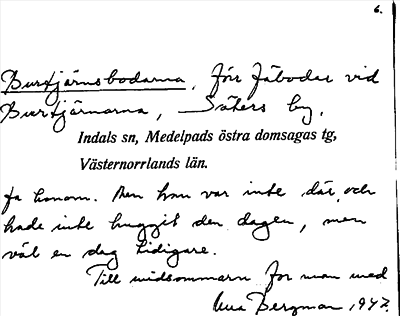 6.
Burtjärnsbodarna. Förr fäbodar vid
Burtjärnarna, Säters by.
Indals sn, Medelpads östra domsagas tg,
Västernorrlands län.
fa honom. Men hon var inte där, och
hade inte huggit den dagen, men
väl en dag tidigare.
Till midsommarn for man med
Bergman 1947.